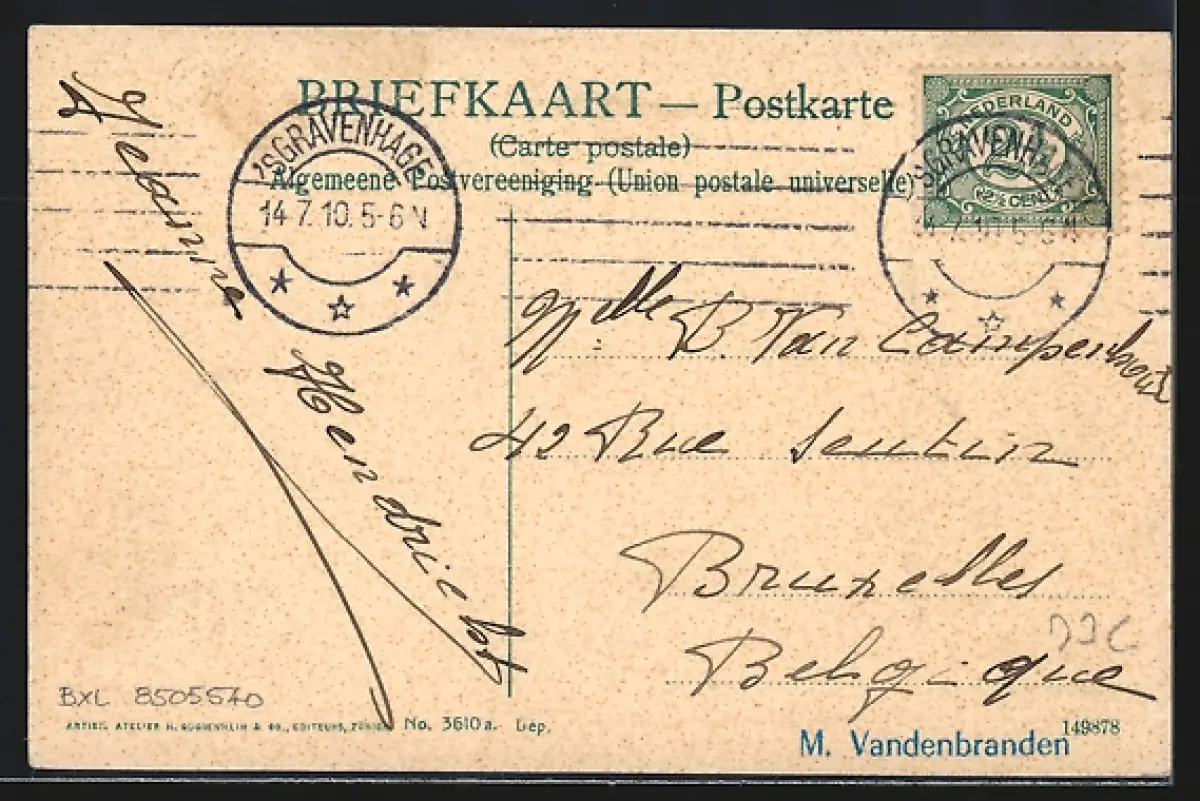 BRIEFKAART — Postkarte
(Carte postale)
Algemeene Postvereeniging (Union postale universelle)
'SGRAVENHAGE
14 7.10.5-6N
NEDERLAND
2½ CENT
'SGRAVENHAGE
14 7.10.5-6N
Jeanne
Hendrickx
Melle B. Van Campenhout
42 Rue Seutin
Bruxelles
Belgique
DJC
BXL 8505570
ARTIST. ATELIER H. GUGGENHEIM & Co., EDITEURS, ZÜRICH No. 3610a. Dép.
149878
M. Vandenbranden